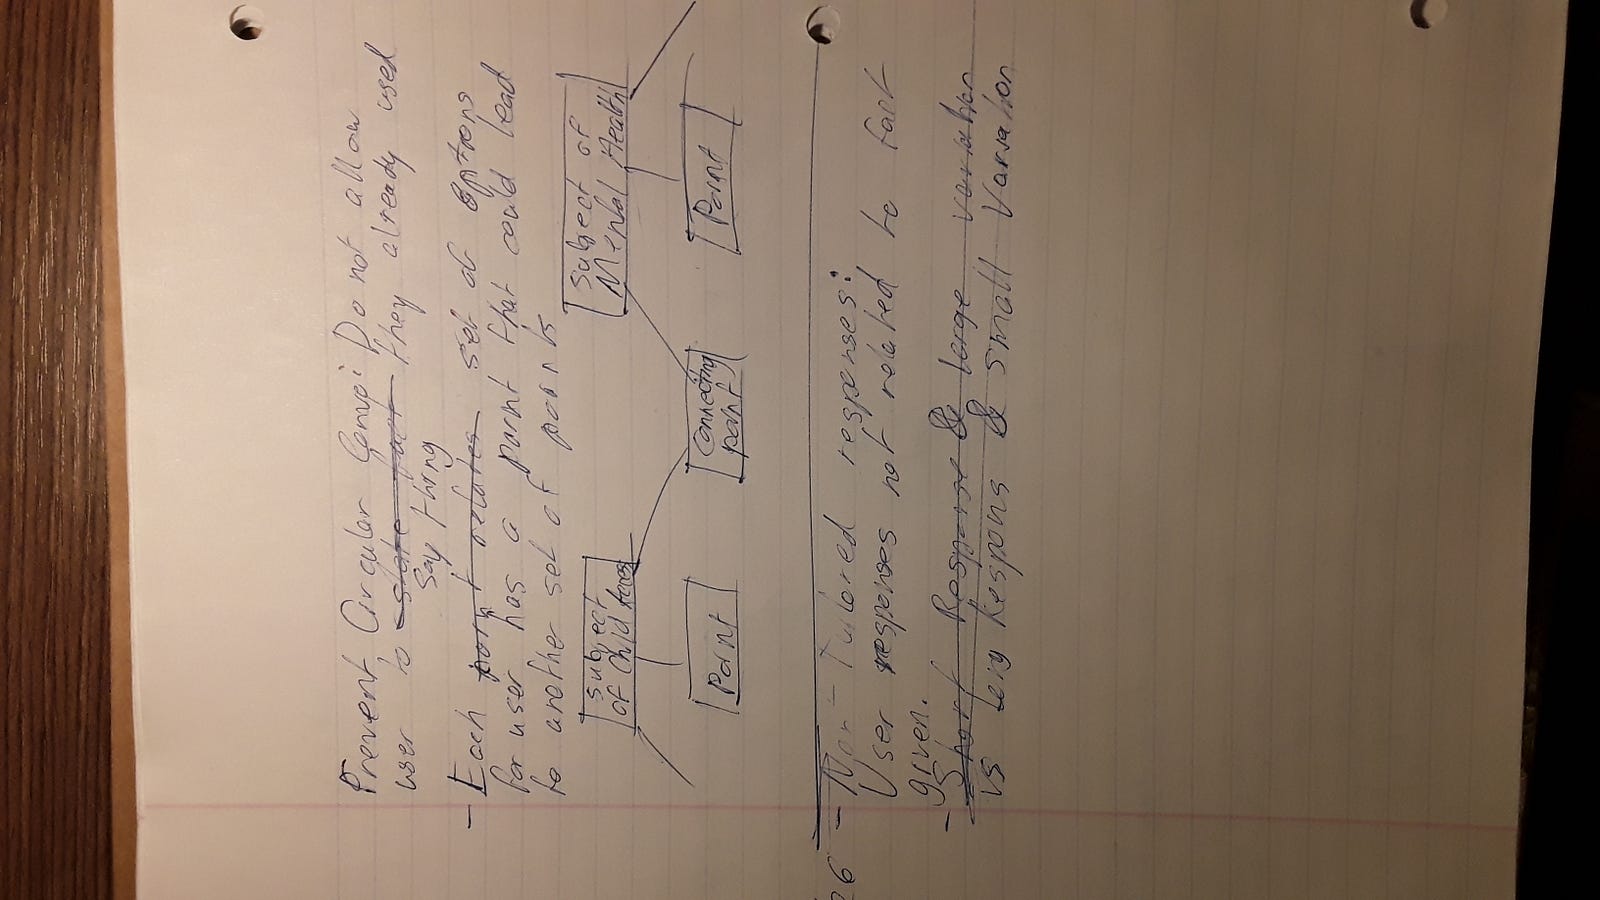 Prevent Circular Comp: Do not allow
user to state fact they already used
say thing
- Each point relates set of options
for user has a point that could lead
to another set of points
Subject of Child
Subject of Mental Health
Point
Connecting point
Point
26 - Non-Tailored responses:
User responses not related to fact
given.
- Short Response & large variation
vs Long Respons & Small Variation